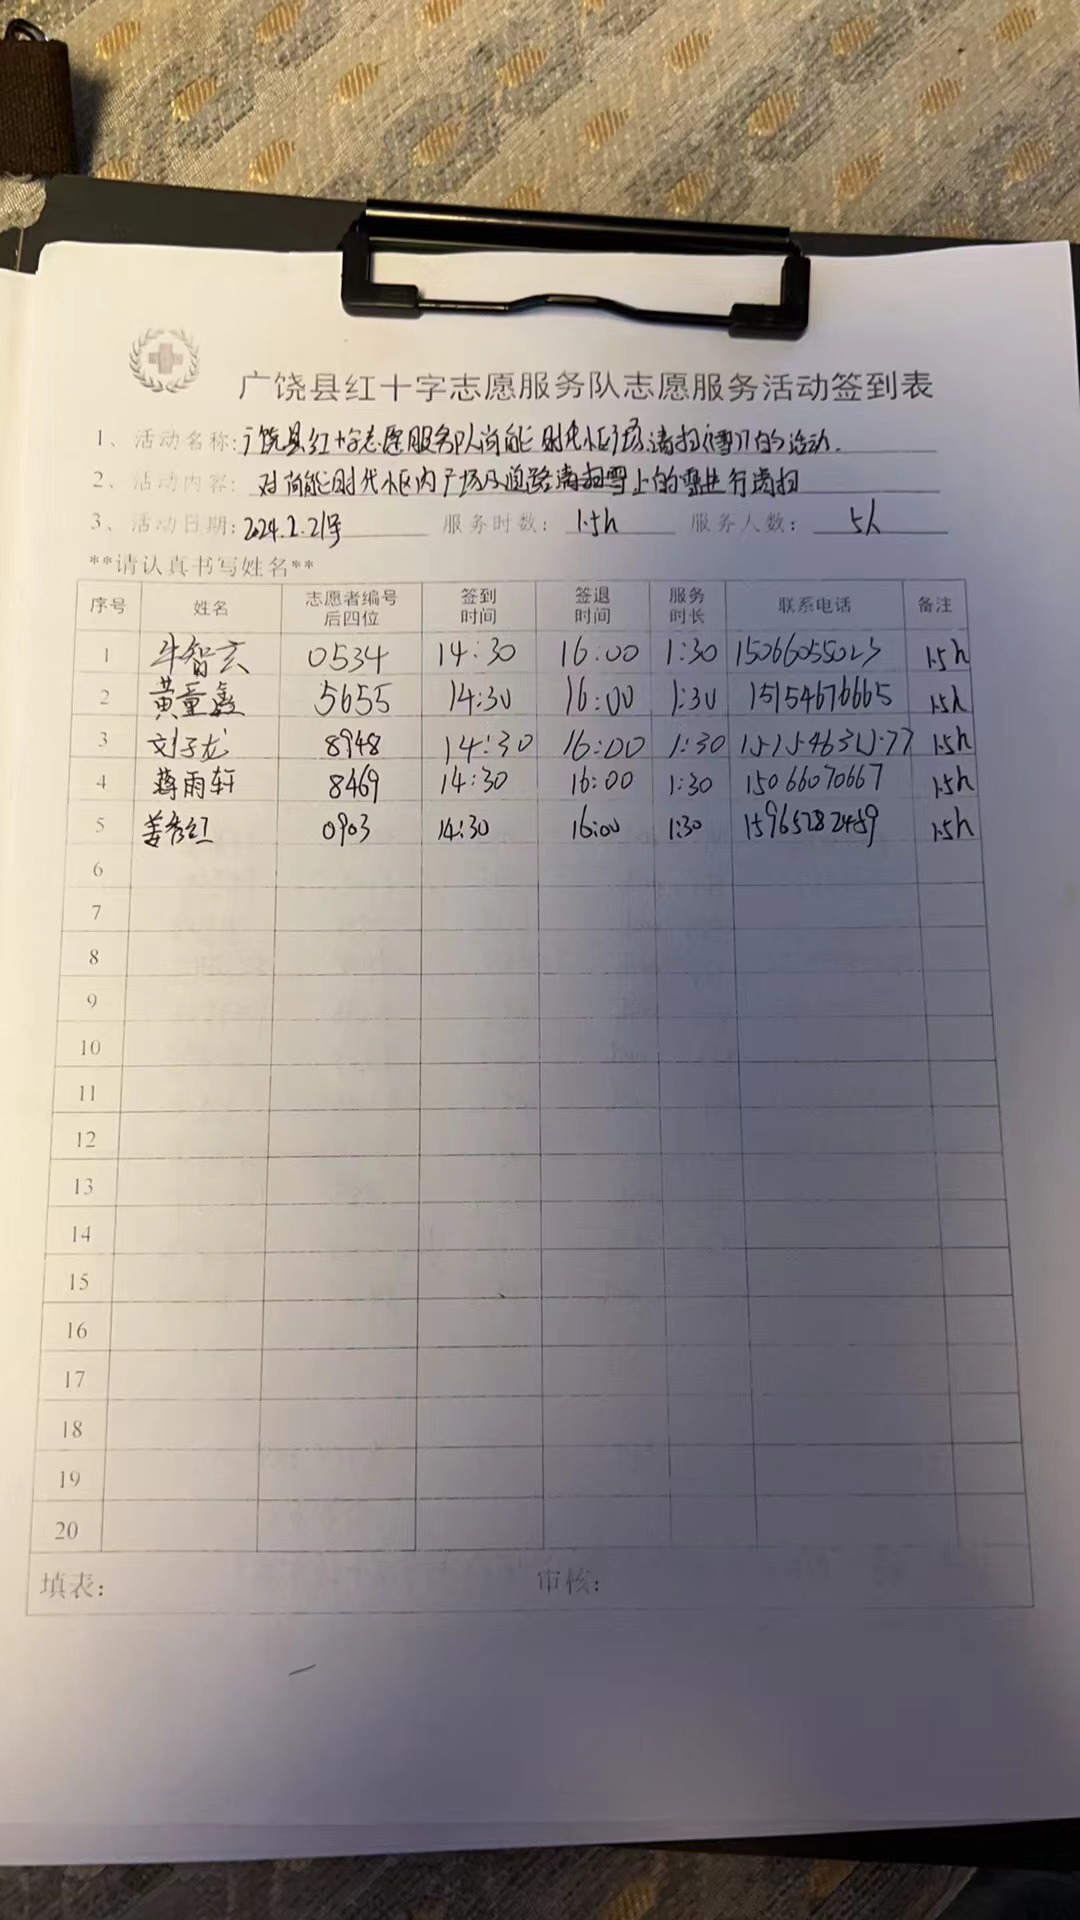 广饶县红十字志愿服务队志愿服务活动签到表
1、活动名称:广饶县红十字志愿服务队尚能时代小区广场清扫积雪的活动.
2、活动内容: 对尚能时代小区内广场及道路清扫雪上的雪进行清扫
3、活动日期:2024.2.21号 服务时数: 1.5h 服务人数: 5人
**请认真书写姓名**
序号 姓名 志愿者编号后四位 签到时间 签退时间 服务时长 联系电话 备注
1 牛智玄 0534 14:30 16:00 1:30 15066055023 1.5h
2 黄童鑫 5655 14:30 16:00 1:30 15154676665 1.5h
3 刘子龙 8948 14:30 16:00 1:30 1.5h
4 蒋雨轩 8469 14:30 16:00 1:30 15066070667 1.5h
5 姜秀红 0903 14:30 16:00 1:30 15965282489 1.5h
6
7
8
9
10
11
12
13
14
15
16
17
18
19
20
填表: 审核: